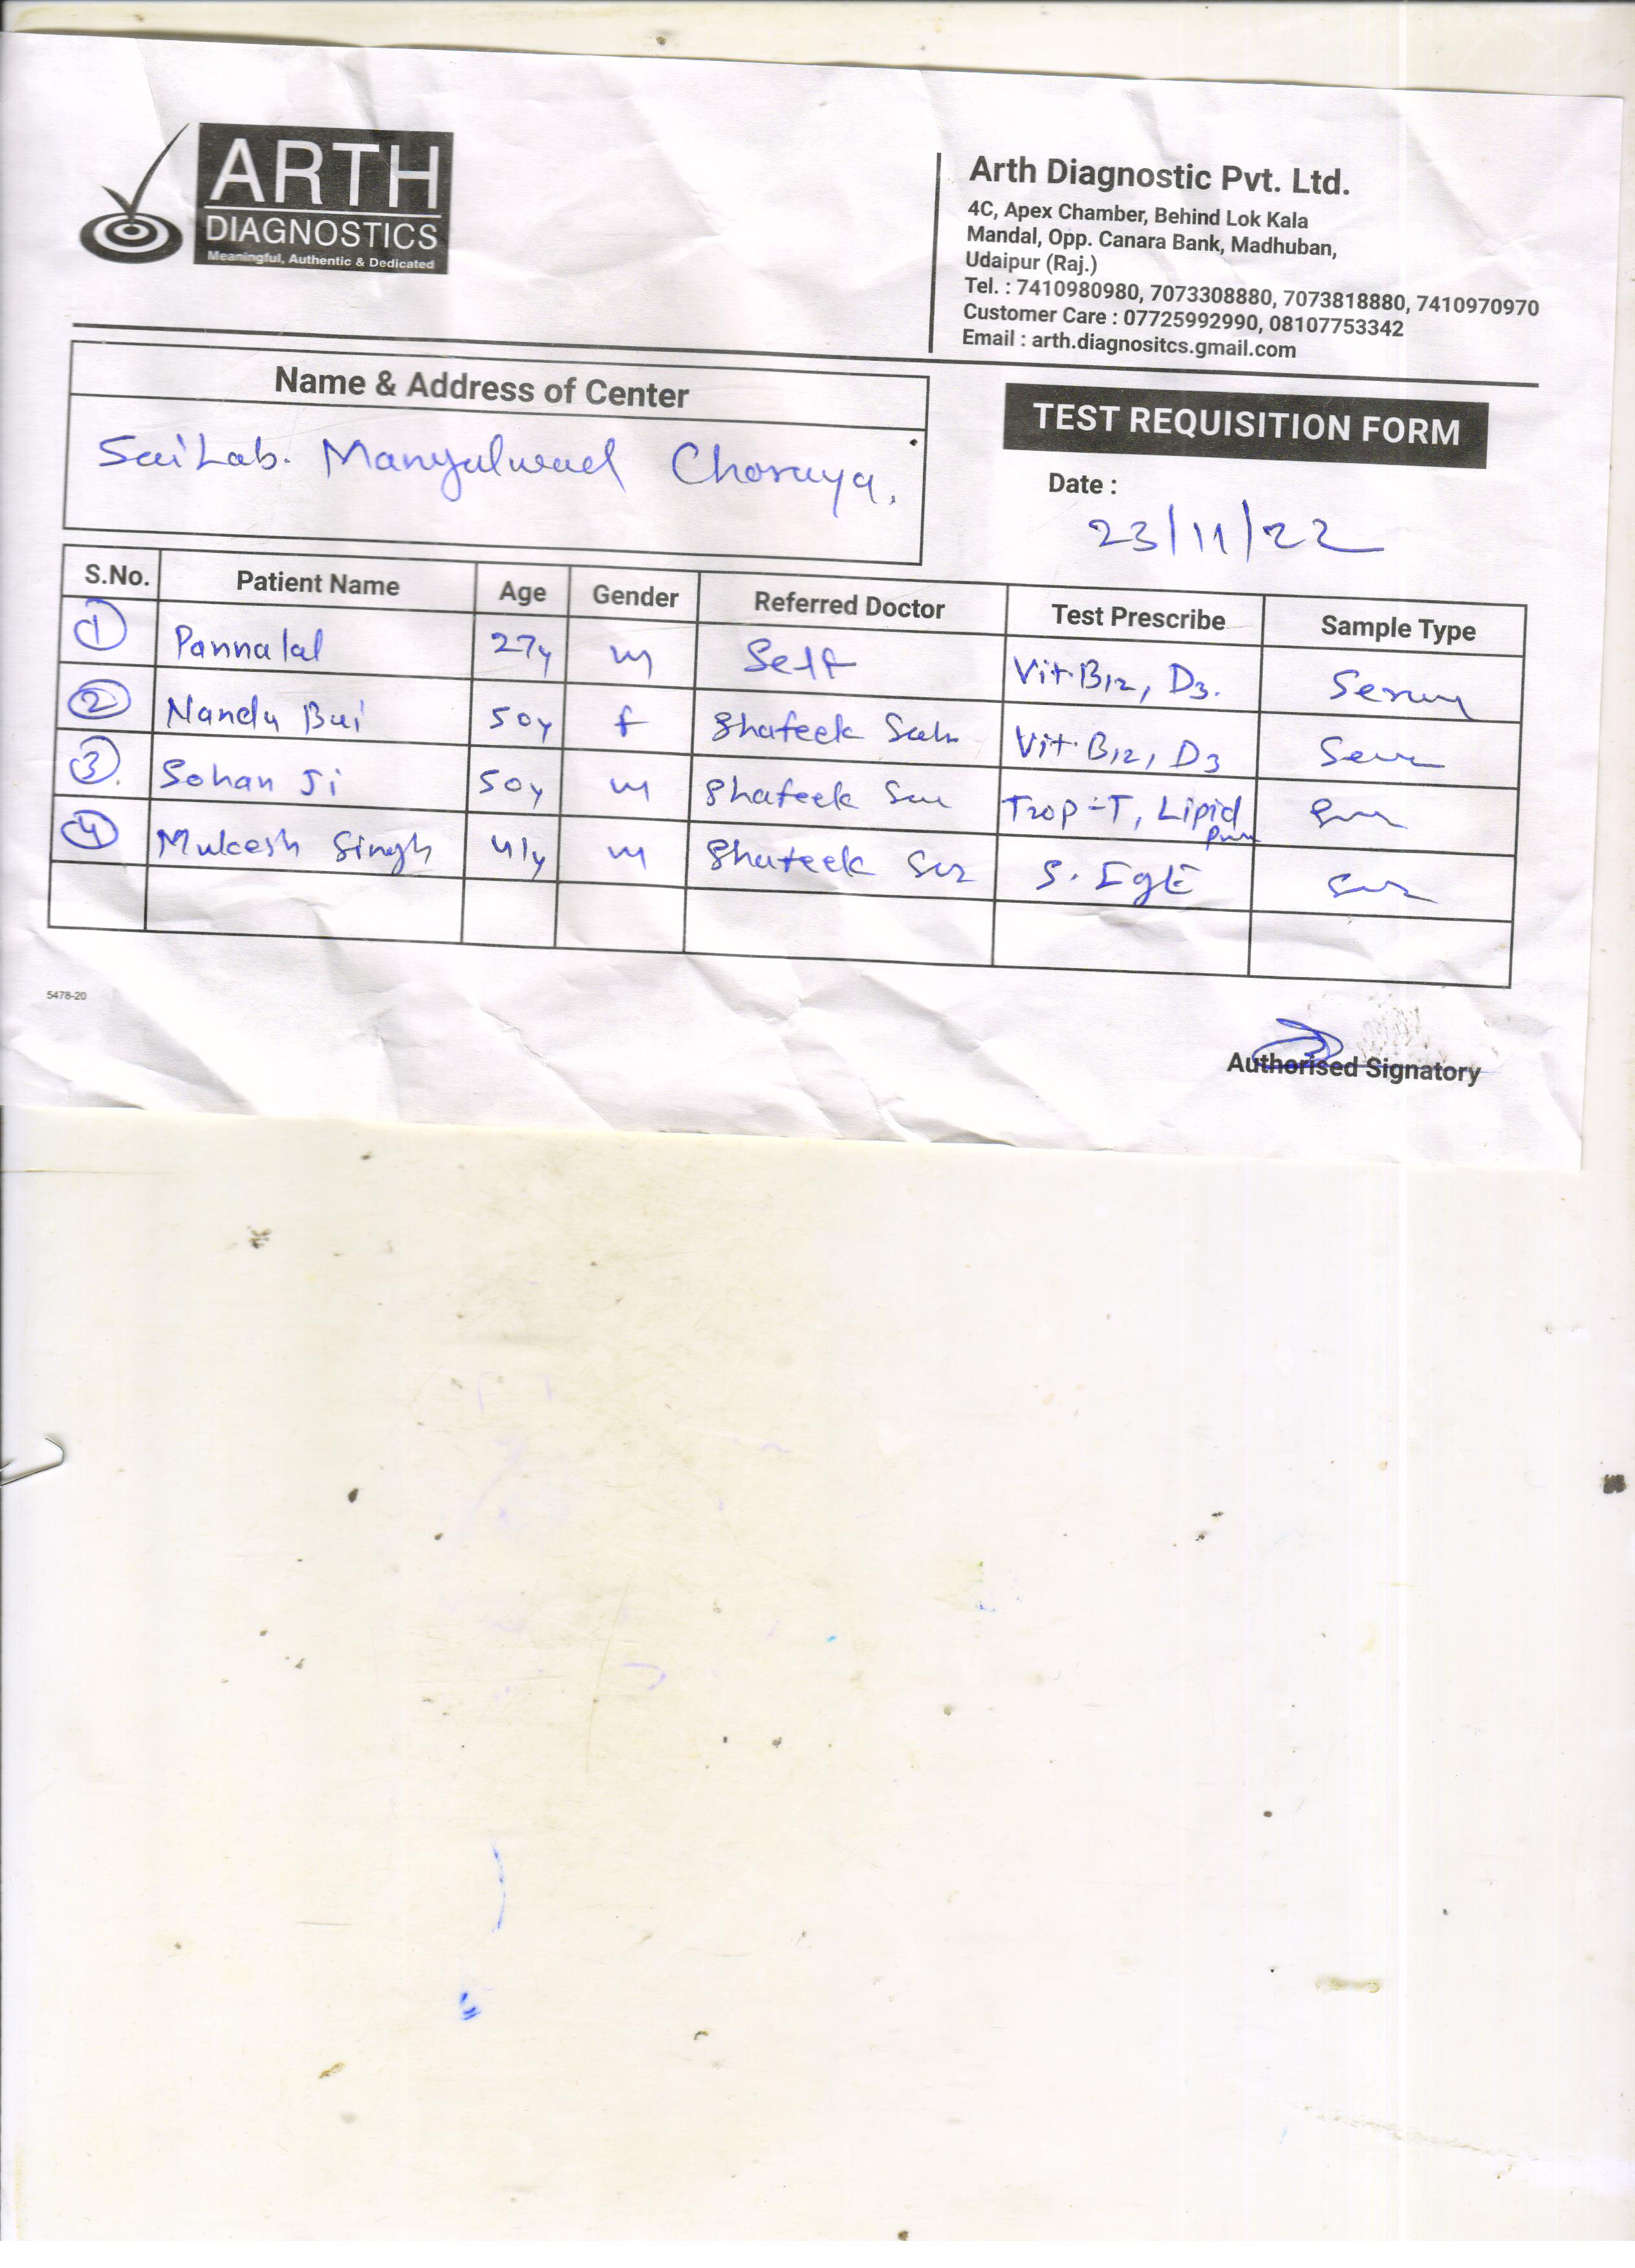 ARTH
DIAGNOSTICS
Meaningful, Authentic & Dedicated
Arth Diagnostic Pvt. Ltd.
4C, Apex Chamber, Behind Lok Kala
Mandal, Opp. Canara Bank, Madhuban,
Udaipur (Raj.)
Tel. : 7410980980, 7073308880, 7073818880, 7410970970
Customer Care : 07725992990, 08107753342
Email : arth.diagnositcs.gmail.com
Name & Address of Center
Sai Lab. Mangalwad Choraya.
TEST REQUISITION FORM
Date :
23/11/22
S.No. Patient Name Age Gender Referred Doctor Test Prescribe Sample Type
1 Pannalal 27y m Self Vit B12, D3. Serum
2 Nandu Bai 50y f Shafeek Vit. B12, D3
3 Sohan Ji 50y m Shafeek Trop-T, Lipid
4 Mukesh Singh 41y m Shafeek S. IgE
5478-20
Authorised Signatory